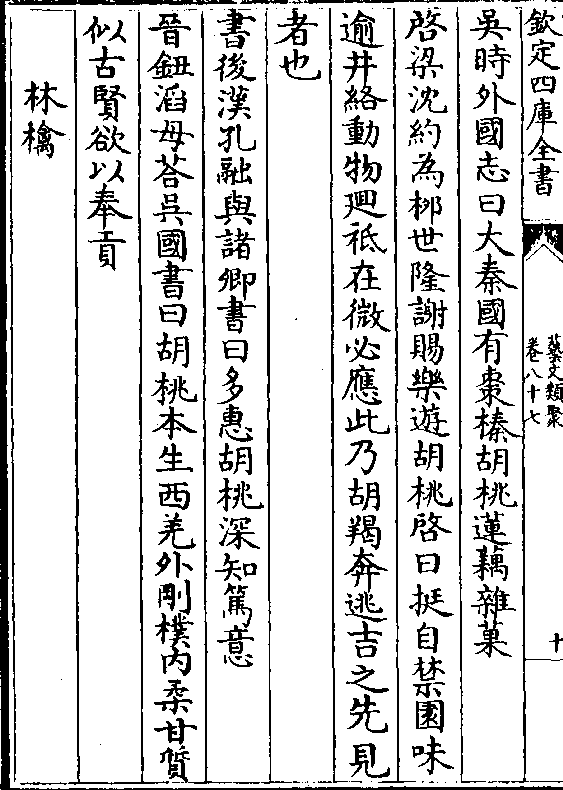 欽定四庫全書
藝文類聚
卷八十七
十
吳時外國志曰大秦國有棗榛胡桃蓮藕雜菓
啓梁沈約為栁世隆謝賜樂遊胡桃啓曰挺自禁園味
逾井絡動物廻祗在微必應此乃胡羯奔逃吉之先見
者也
書後漢孔融與諸卿書曰多惠胡桃深知篤意
晉鈕滔母荅呉國書曰胡桃本生西羌外剛樸内柔甘質
似古賢欲以奉貢
林檎